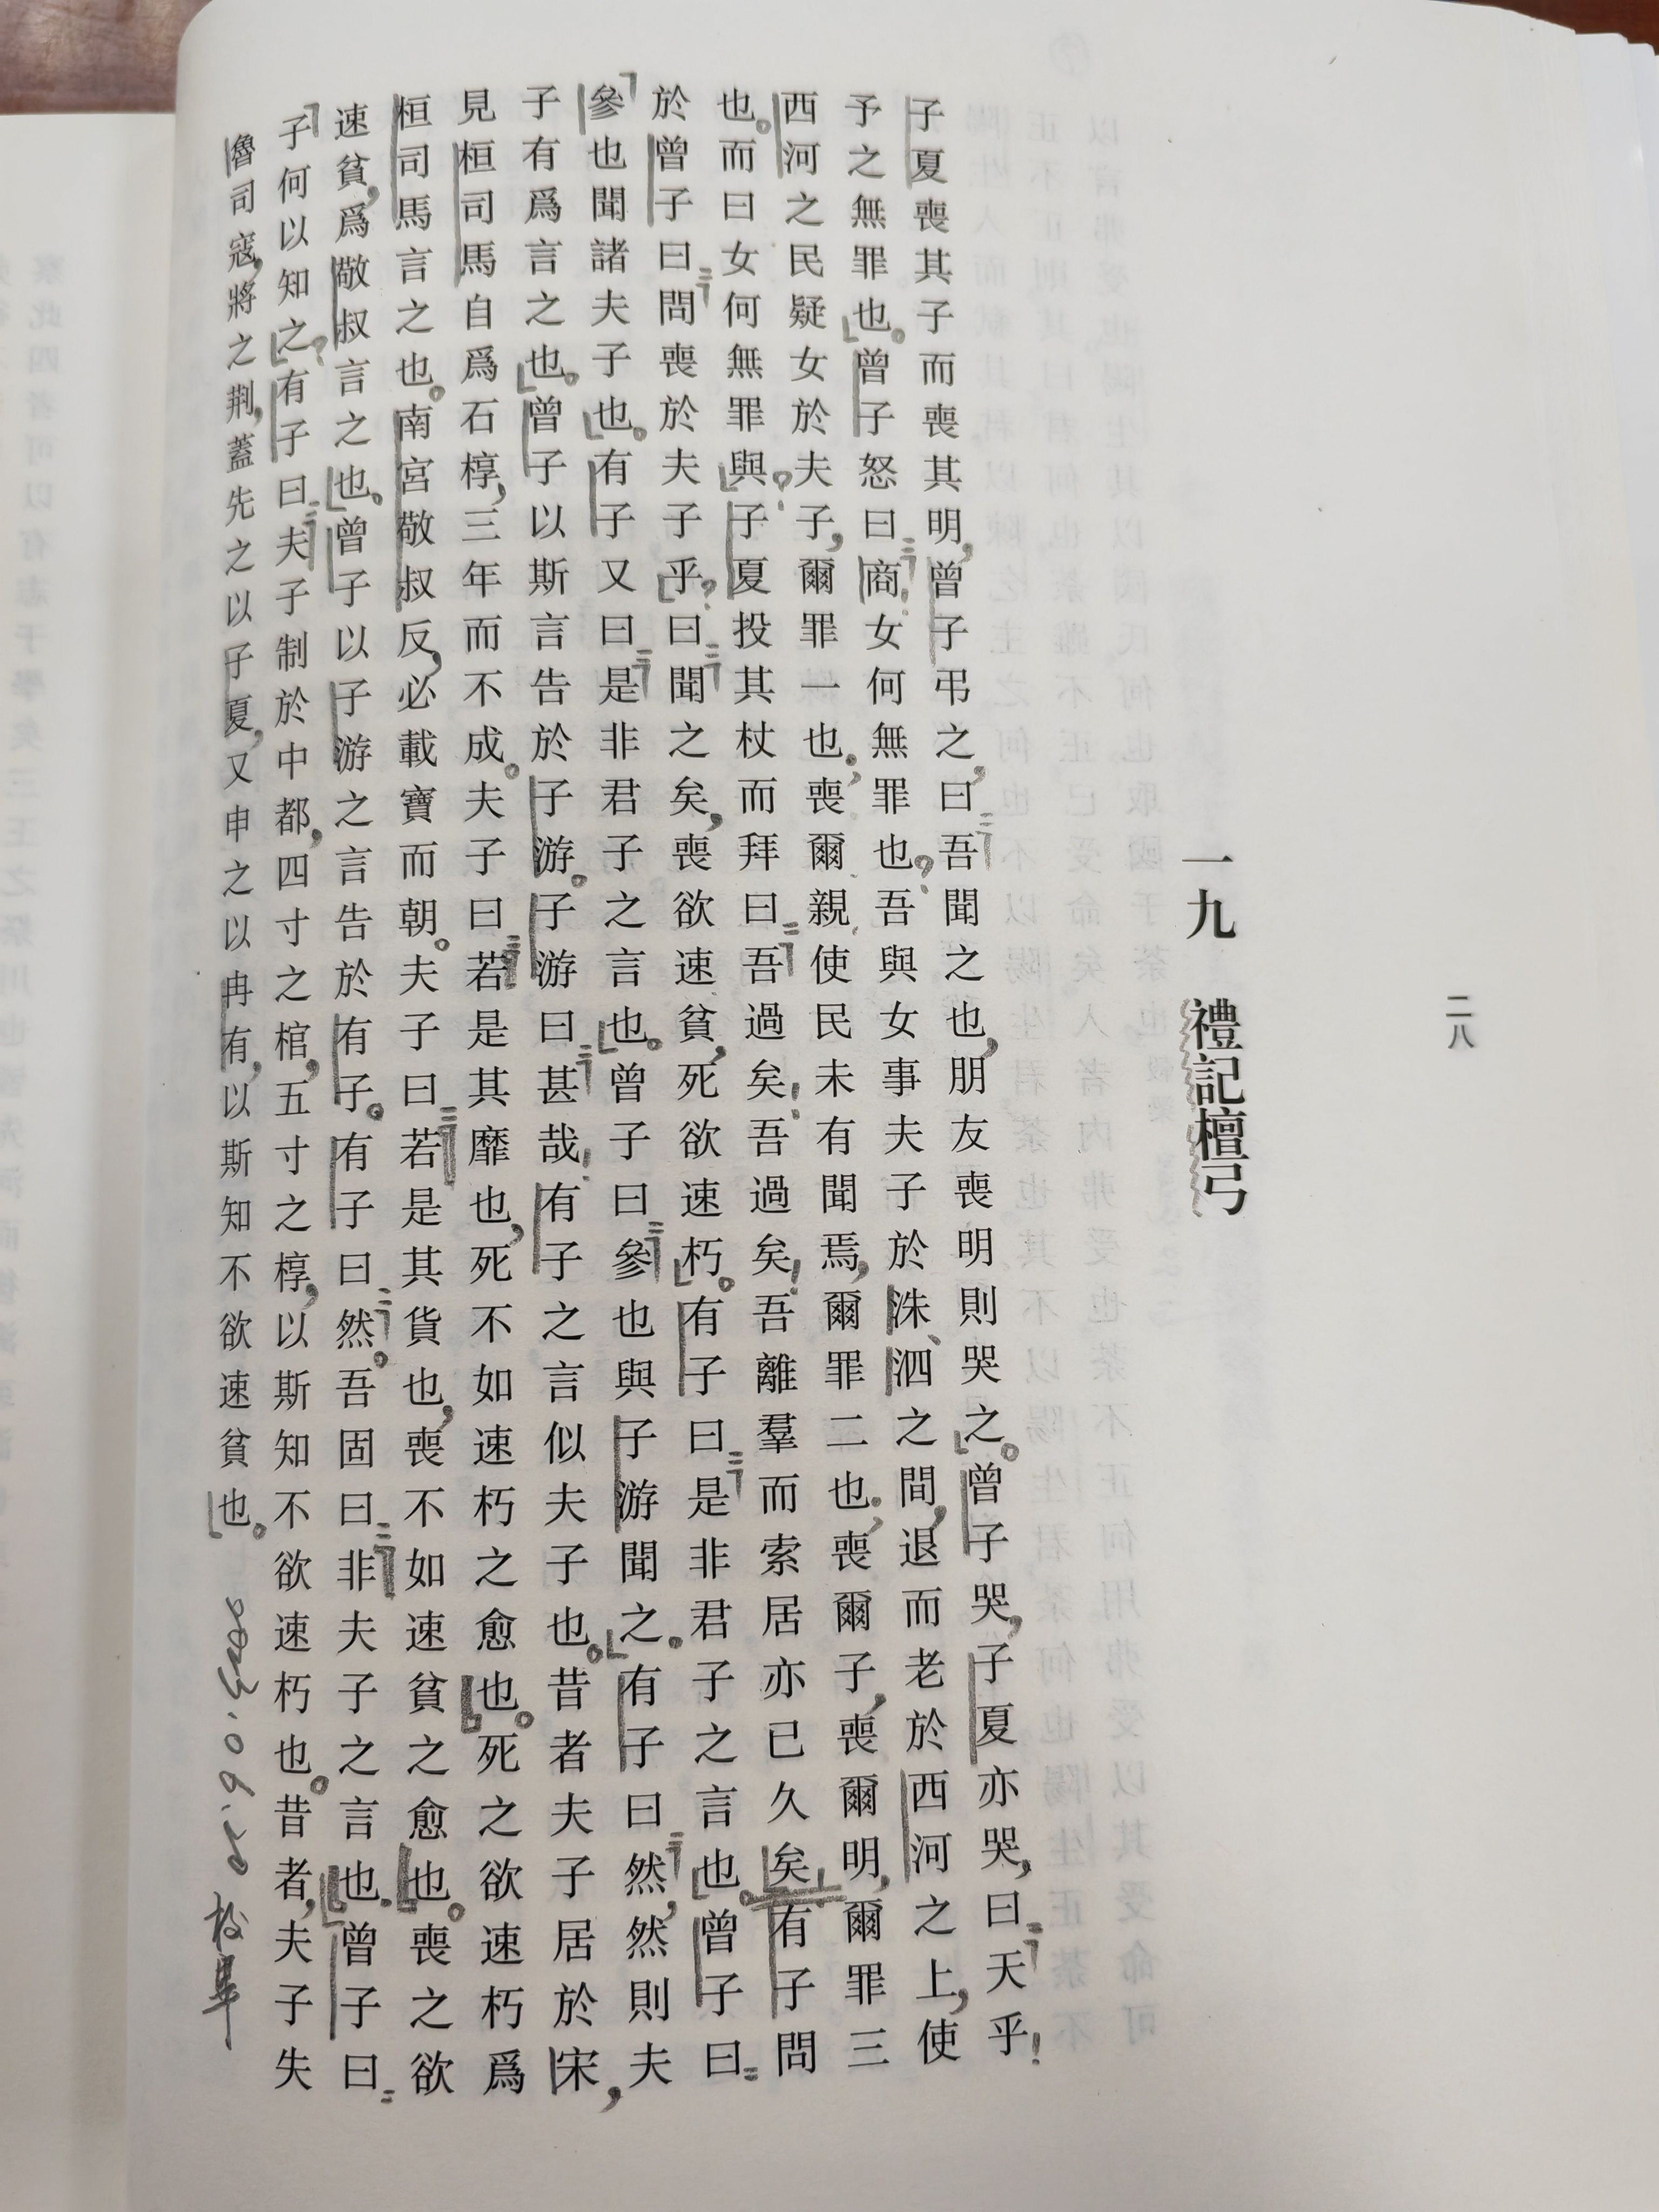 二八
一九　禮記檀弓
子夏喪其子而喪其明，曾子弔之，曰：「吾聞之也，朋友喪明則哭之。」曾子哭，子夏亦哭，曰：「天乎！
予之無罪也。」曾子怒曰：「商！女何無罪也？吾與女事夫子於洙、泗之間，退而老於西河之上，使
西河之民疑女於夫子，爾罪一也；喪爾親，使民未有聞焉，爾罪二也；喪爾子，喪爾明，爾罪三
也。而曰女何無罪與？」子夏投其杖而拜曰：「吾過矣！吾過矣！吾離羣而索居亦已久矣。」有子問
於曾子曰：「問喪於夫子乎？」曰：「聞之矣，喪欲速貧，死欲速朽。」有子曰：「是非君子之言也。」曾子曰：
「參也聞諸夫子也。」有子又曰：「是非君子之言也。」曾子曰：「參也與子游聞之。」有子曰：「然，然則夫
子有爲言之也。」曾子以斯言告於子游。子游曰：「甚哉！有子之言似夫子也。昔者夫子居於宋，
見桓司馬自爲石椁，三年而不成。夫子曰：『若是其靡也，死不如速朽之愈也。』死之欲速朽爲
桓司馬言之也。南宮敬叔反，必載寶而朝。夫子曰：『若是其貨也，喪不如速貧之愈也。』喪之欲
速貧，爲敬叔言之也。」曾子以子游之言告於有子。有子曰：「然。吾固曰：『非夫子之言也。』」曾子曰：
「子何以知之？」有子曰：「夫子制於中都，四寸之棺，五寸之椁，以斯知不欲速朽也。昔者，夫子失
魯司寇，將之荆，蓋先之以子夏，又申之以冉有，以斯知不欲速貧也。」
校畢